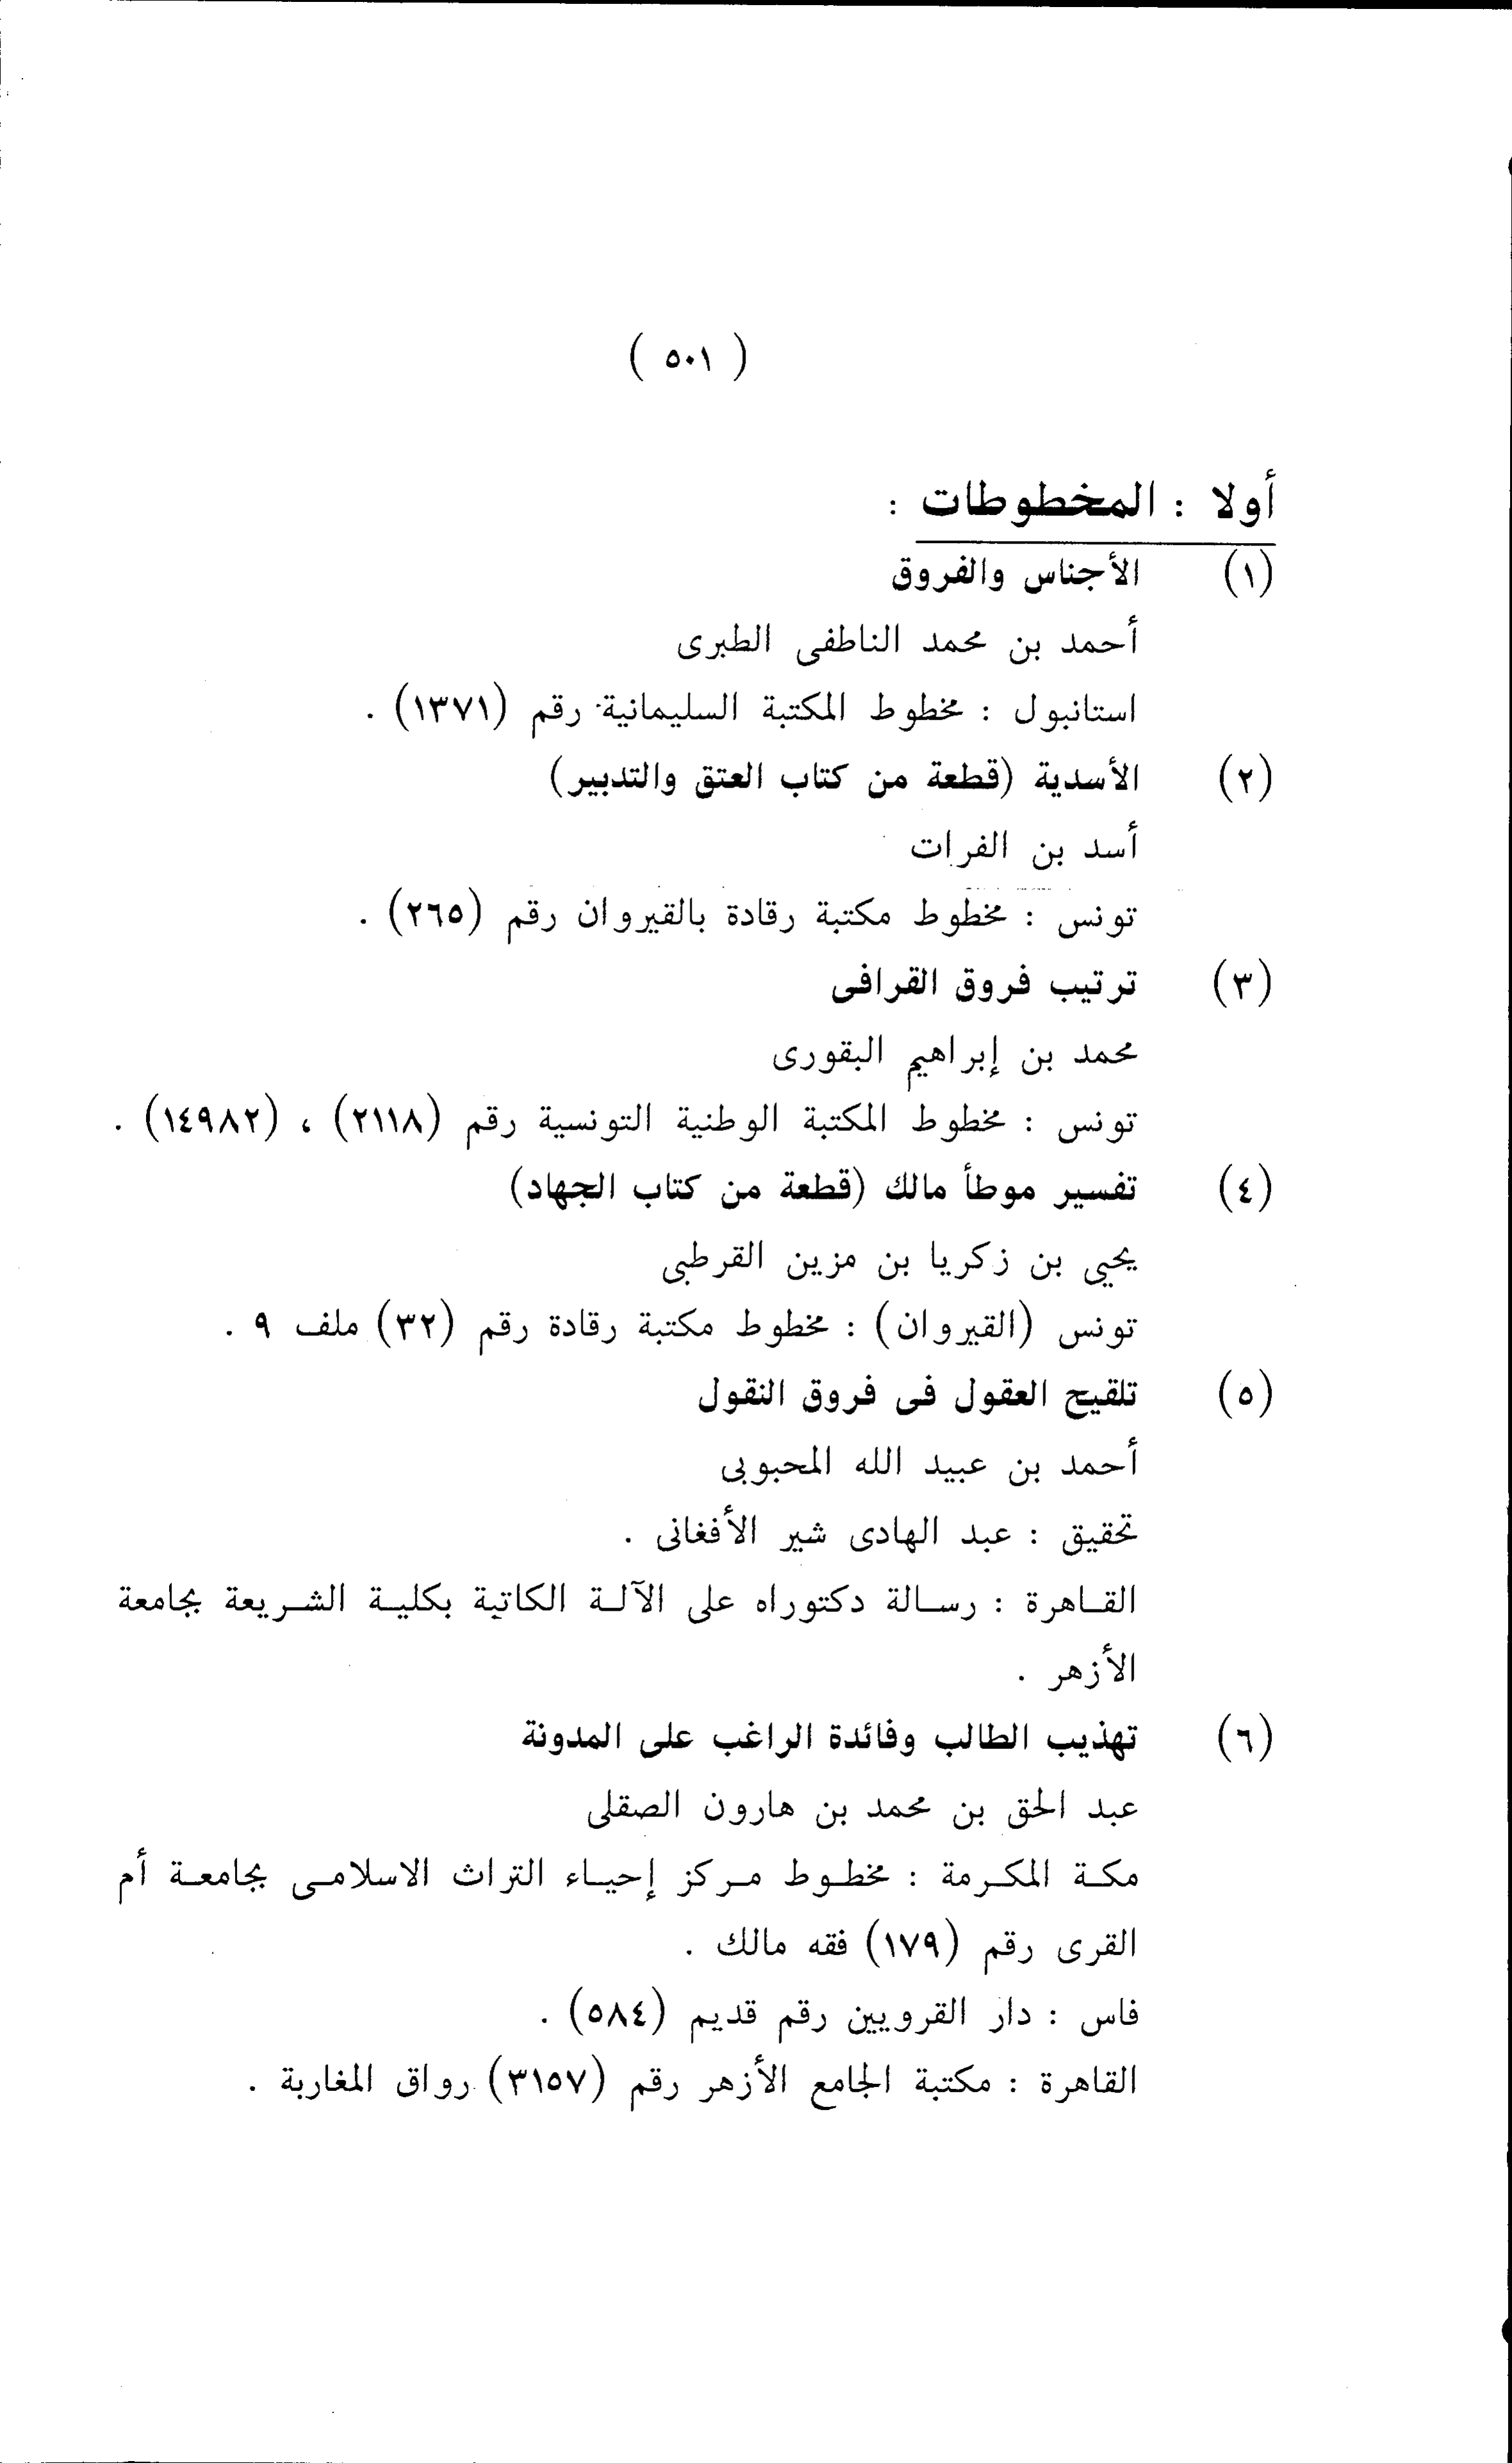 ( ٥٠١ )
أولا : المخطوطات :
(١) الأجناس والفروق
أحمد بن محمد الناطفى الطبرى
استانبول : مخطوط المكتبة السليمانية رقم (١٣٧١) .
(٢) الأسدية (قطعة من كتاب العتق والتدبير)
أسد بن الفرات
تونس : مخطوط مكتبة رقادة بالقيروان رقم (٢٦٥) .
(٣) ترتيب فروق القرافى
محمد بن إبراهيم البقورى
تونس : مخطوط المكتبة الوطنية التونسية رقم (٢١١٨) ، (١٤٩٨٢) .
(٤) تفسير موطأ مالك (قطعة من كتاب الجهاد)
يحيى بن زكريا بن مزين القرطبى
تونس (القيروان) : مخطوط مكتبة رقادة رقم (٣٢) ملف ٩ .
(٥) تلقيح العقول فى فروق النقول
أحمد بن عبيد الله المحبوبى
تحقيق : عبد الهادى شير الأفغانى .
القاهرة : رسالة دكتوراه على الآلة الكاتبة بكلية الشريعة بجامعة
الأزهر .
(٦) تهذيب الطالب وفائدة الراغب على المدونة
عبد الحق بن محمد بن هارون الصقلى
مكة المكرمة : مخطوط مركز إحياء التراث الاسلامى بجامعة أم
القرى رقم (١٧٩) فقه مالك .
فاس : دار القرويين رقم قديم (٥٨٤) .
القاهرة : مكتبة الجامع الأزهر رقم (٣١٥٧) رواق المغاربة .